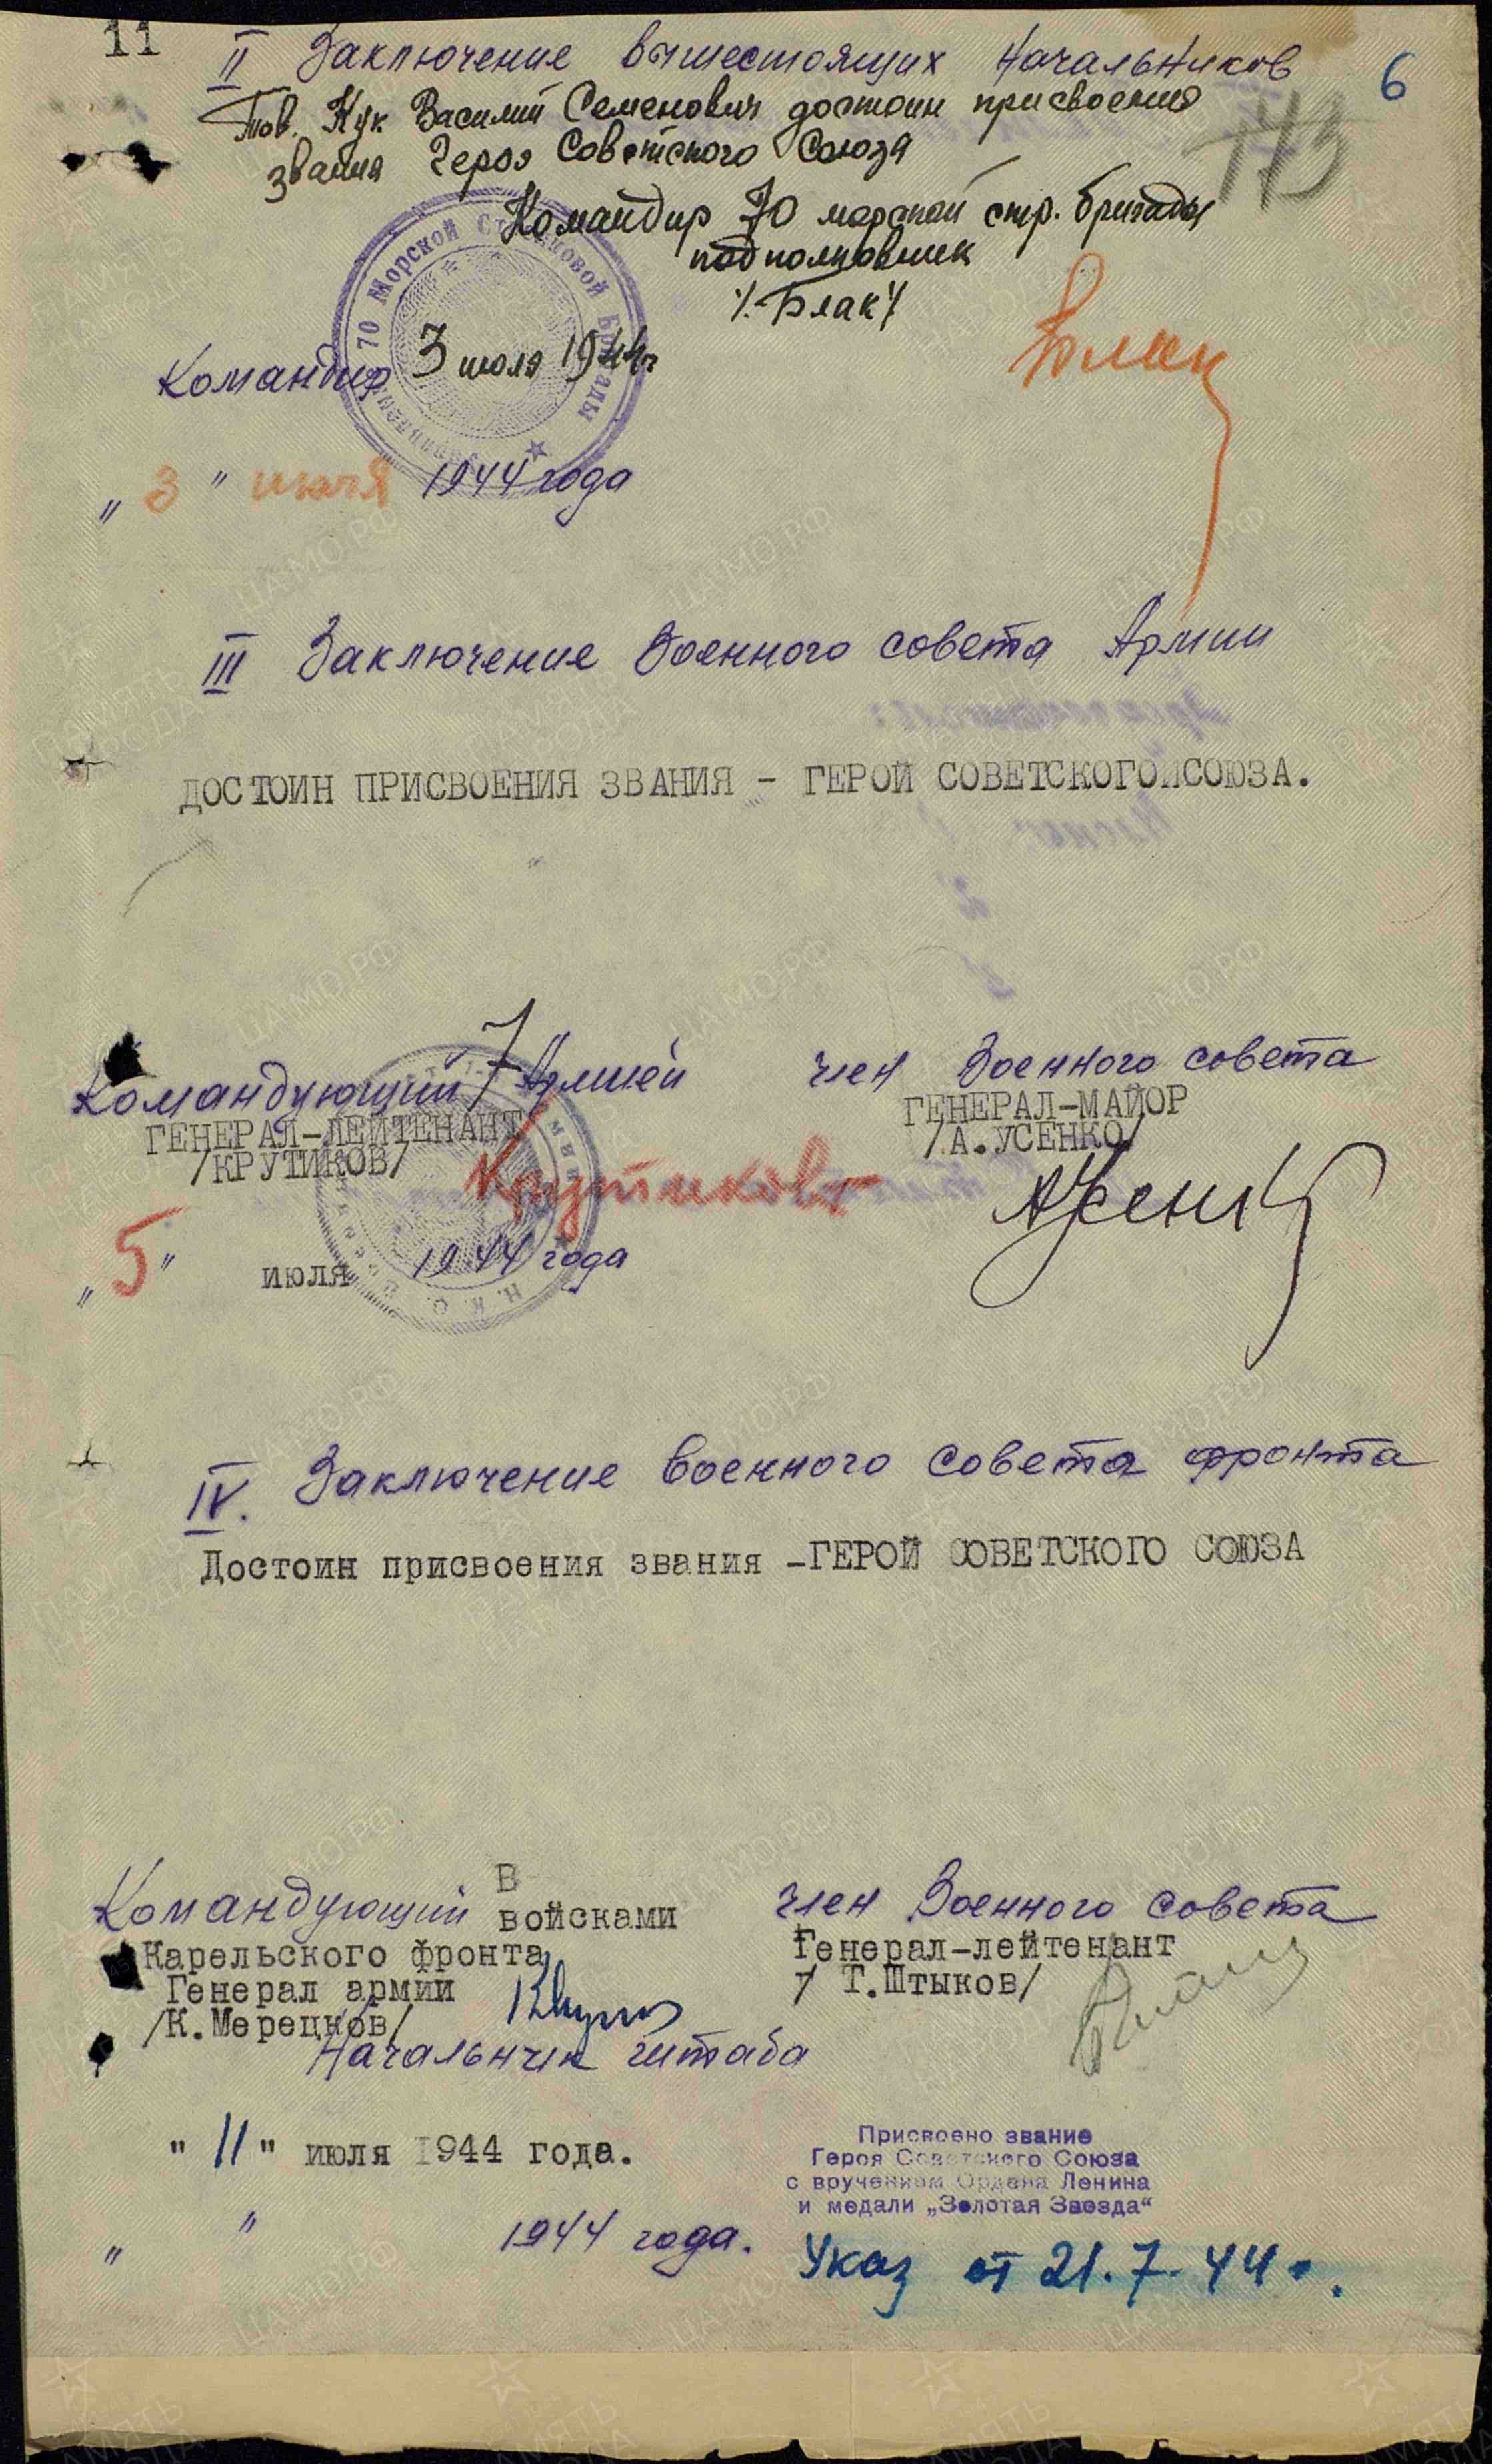 11
6
173
II Заключение вышестоящих Начальников
Тов. Кук Василий Семенович достоин присвоения
звания Героя Советского Союза
Командир 70 морской стр. бригады
подполковник
/Блак/
70 Морской Стрелковой Бригады
Командир 3 июля 1944г
„3" июля 1944 года
III Заключение Военного совета Армии
ДОСТОИН ПРИСВОЕНИЯ ЗВАНИЯ - ГЕРОЙ СОВЕТСКОГО СОЮЗА.
Командующий 7 Армией
ГЕНЕРАЛ-ЛЕЙТЕНАНТ
/КРУТИКОВ/
Крутиков
„5" июля 1944 года
член Военного совета
ГЕНЕРАЛ-МАЙОР
/А.УСЕНКО/
IV. Заключение Военного совета фронта
Достоин присвоения звания -ГЕРОЙ СОВЕТСКОГО СОЮЗА
В
Командующий войсками
Карельского фронта
Генерал армии
/К.Мерецков/
Начальник штаба
член Военного совета
Генерал-лейтенант
/ Т.Штыков/
"11" июля 1944 года.
„ " 1944 года.
Присвоено звание
Героя Советского Союза
с вручением Ордена Ленина
и медали „Золотая Звезда"
Указ от 21.7.44г.